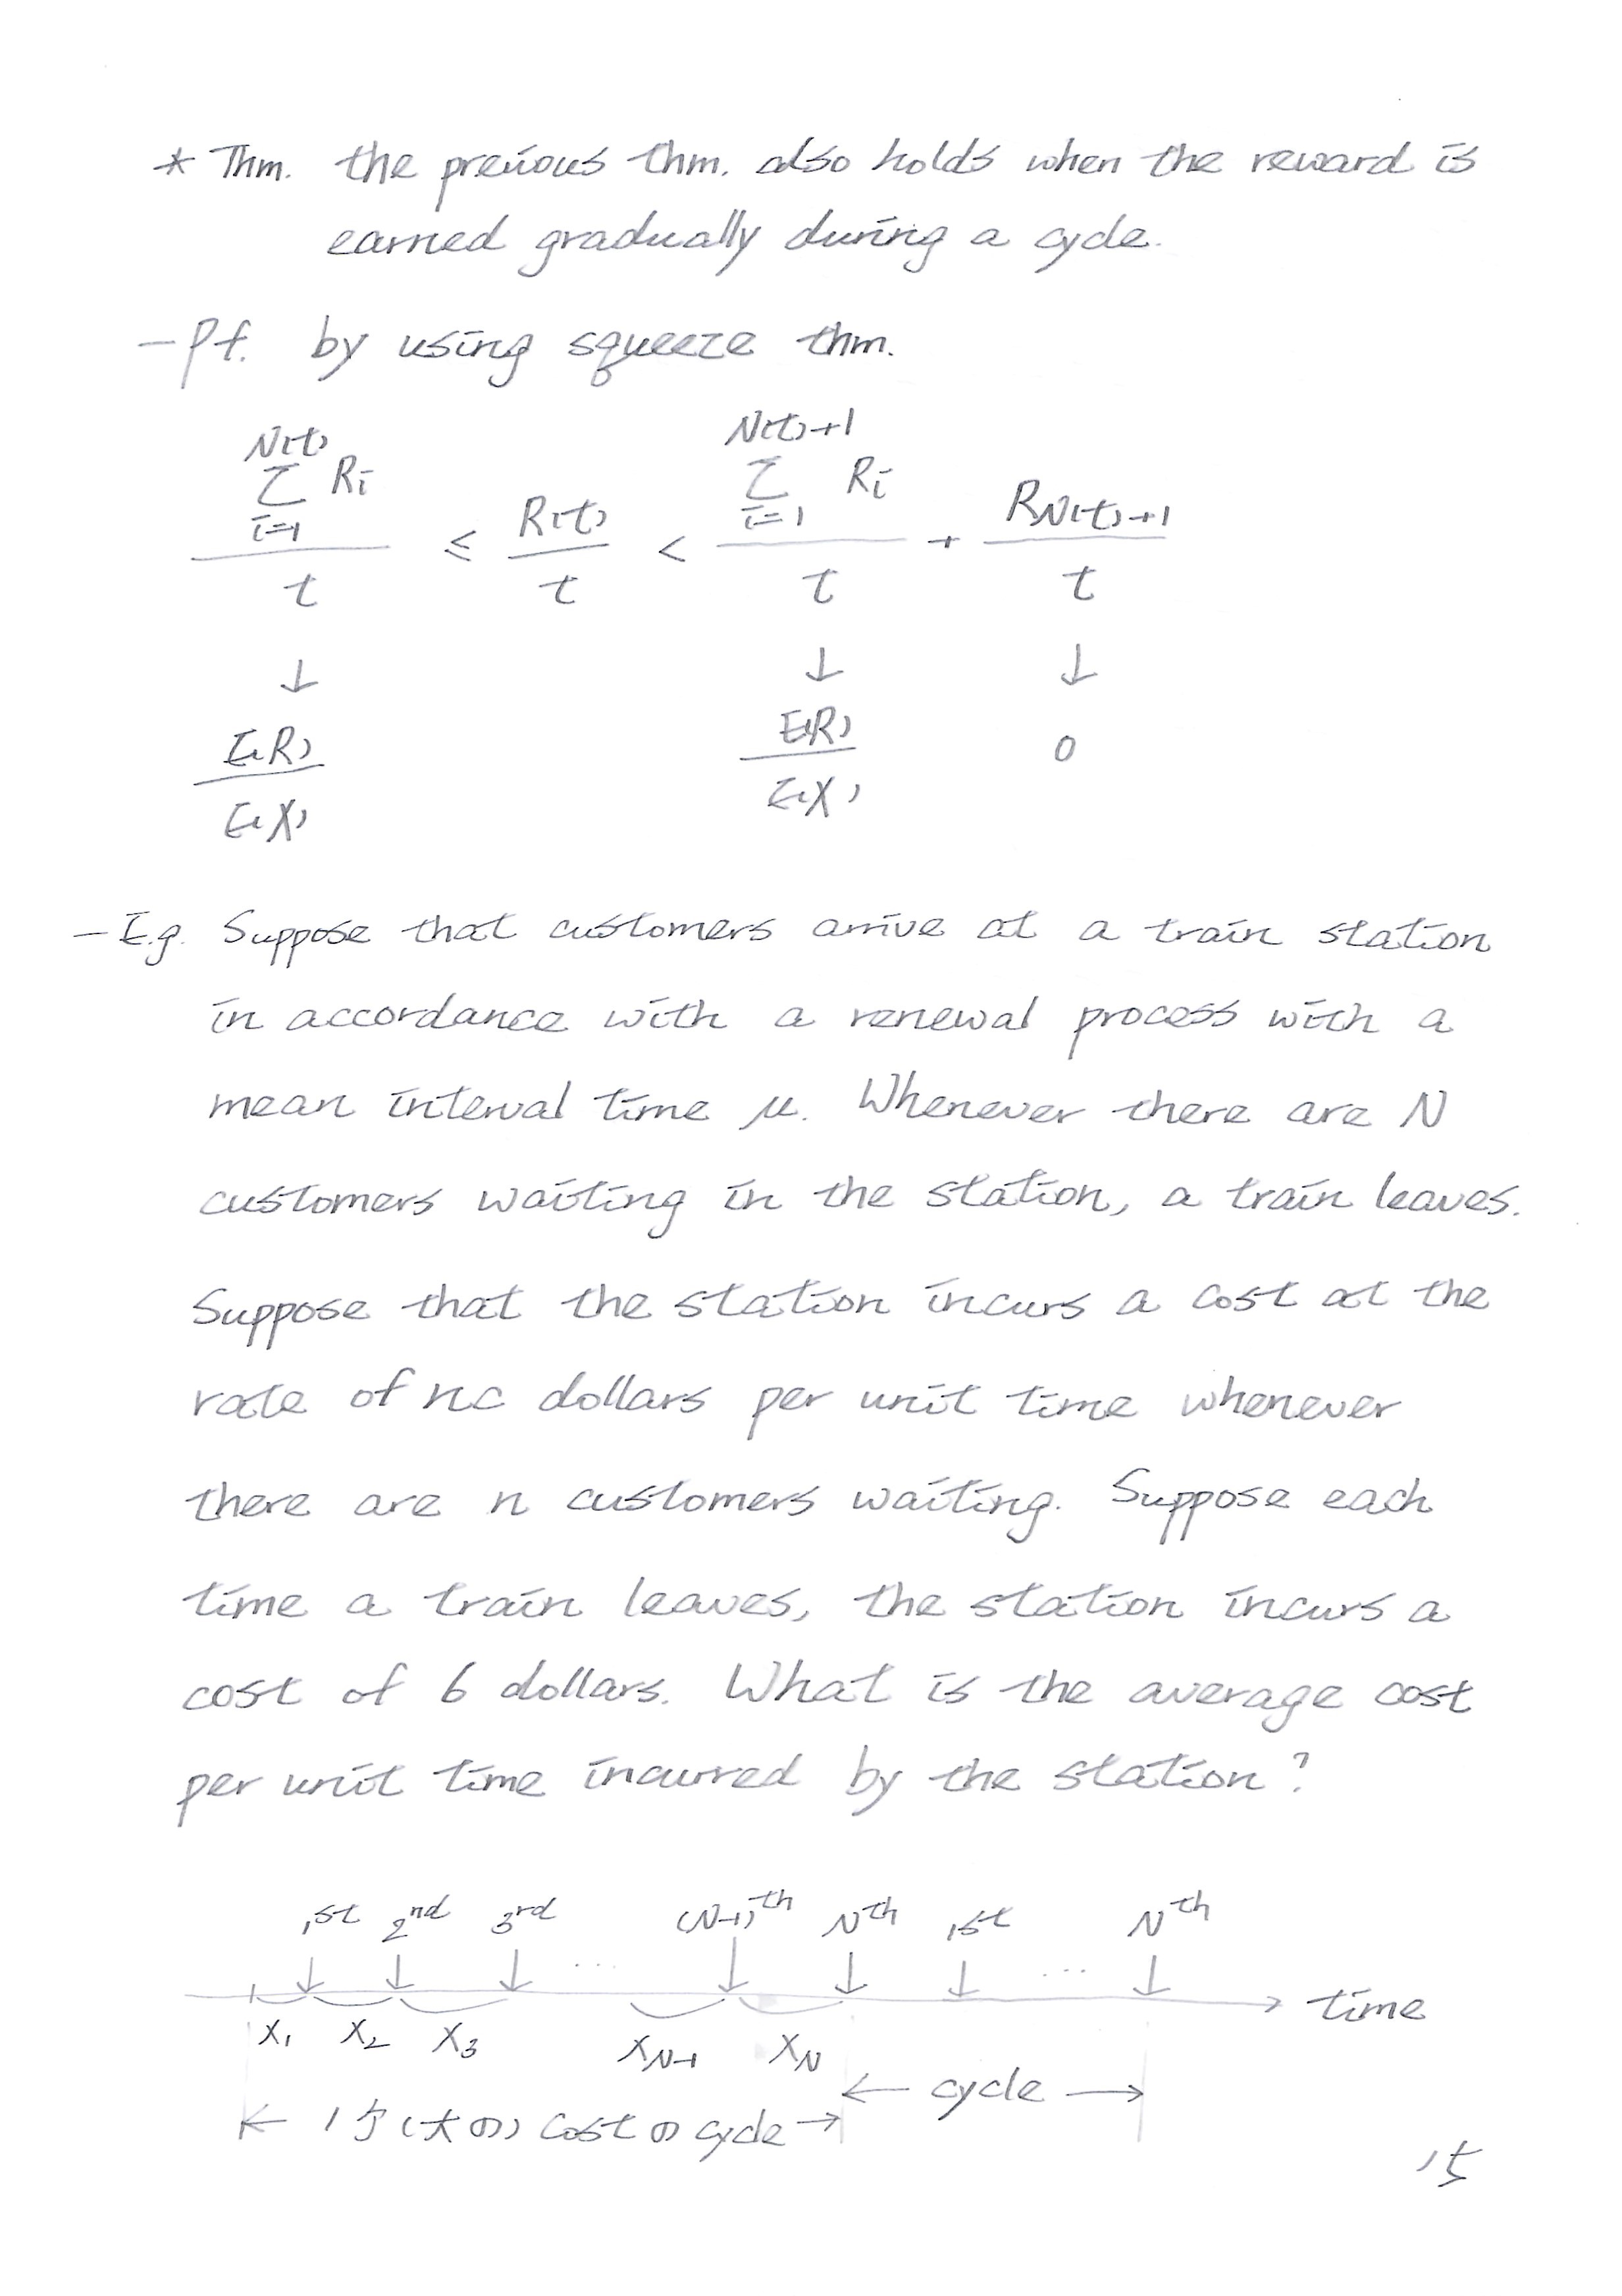 * Thm. the previous thm. also holds when the reward is
earned gradually during a cycle.
- Pf. by using squeeze thm.
N(t) N(t)+1
Σ Ri R(t) Σ Ri RN(t)+1
i=1 ≤ < i=1 +
t t t t
↓ ↓ ↓
E(R) E(R) 0
E(X) E(X)
- E.g. Suppose that customers arrive at a train station
in accordance with a renewal process with a
mean interval time μ. Whenever there are N
customers waiting in the station, a train leaves.
Suppose that the station incurs a cost at the
rate of nc dollars per unit time whenever
there are n customers waiting. Suppose each
time a train leaves, the station incurs a
cost of 6 dollars. What is the average cost
per unit time incurred by the station?
1st 2nd 3rd ... (N-1)th Nth 1st ... Nth
time
X1 X2 X3 XN-1 XN
← cycle →
cost cycle →
15